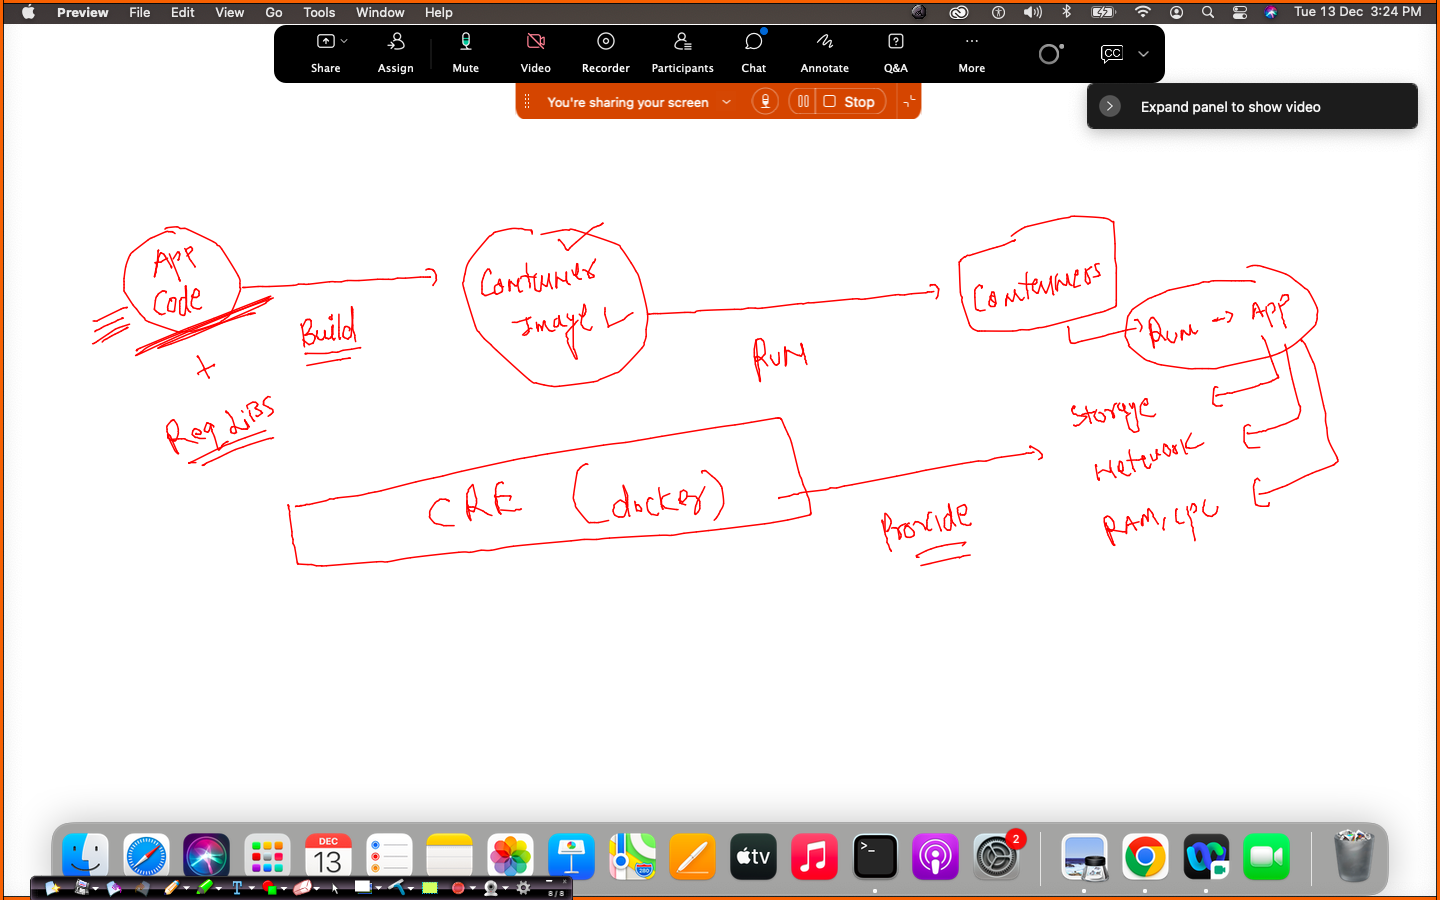 Preview File Edit View Go Tools Window Help Tue 13 Dec 3:24 PM
Share Assign Mute Video Recorder Participants Chat Annotate Q&A More CC
You're sharing your screen Stop
Expand panel to show video
App
Code
Build
+
Req LiBS
Container
Image
RUN
Containers
Run → APP
Storage
Network
RAM, CPU
CRE (docker)
Provide
DEC
13
tv
280
>_
2
T
8/8